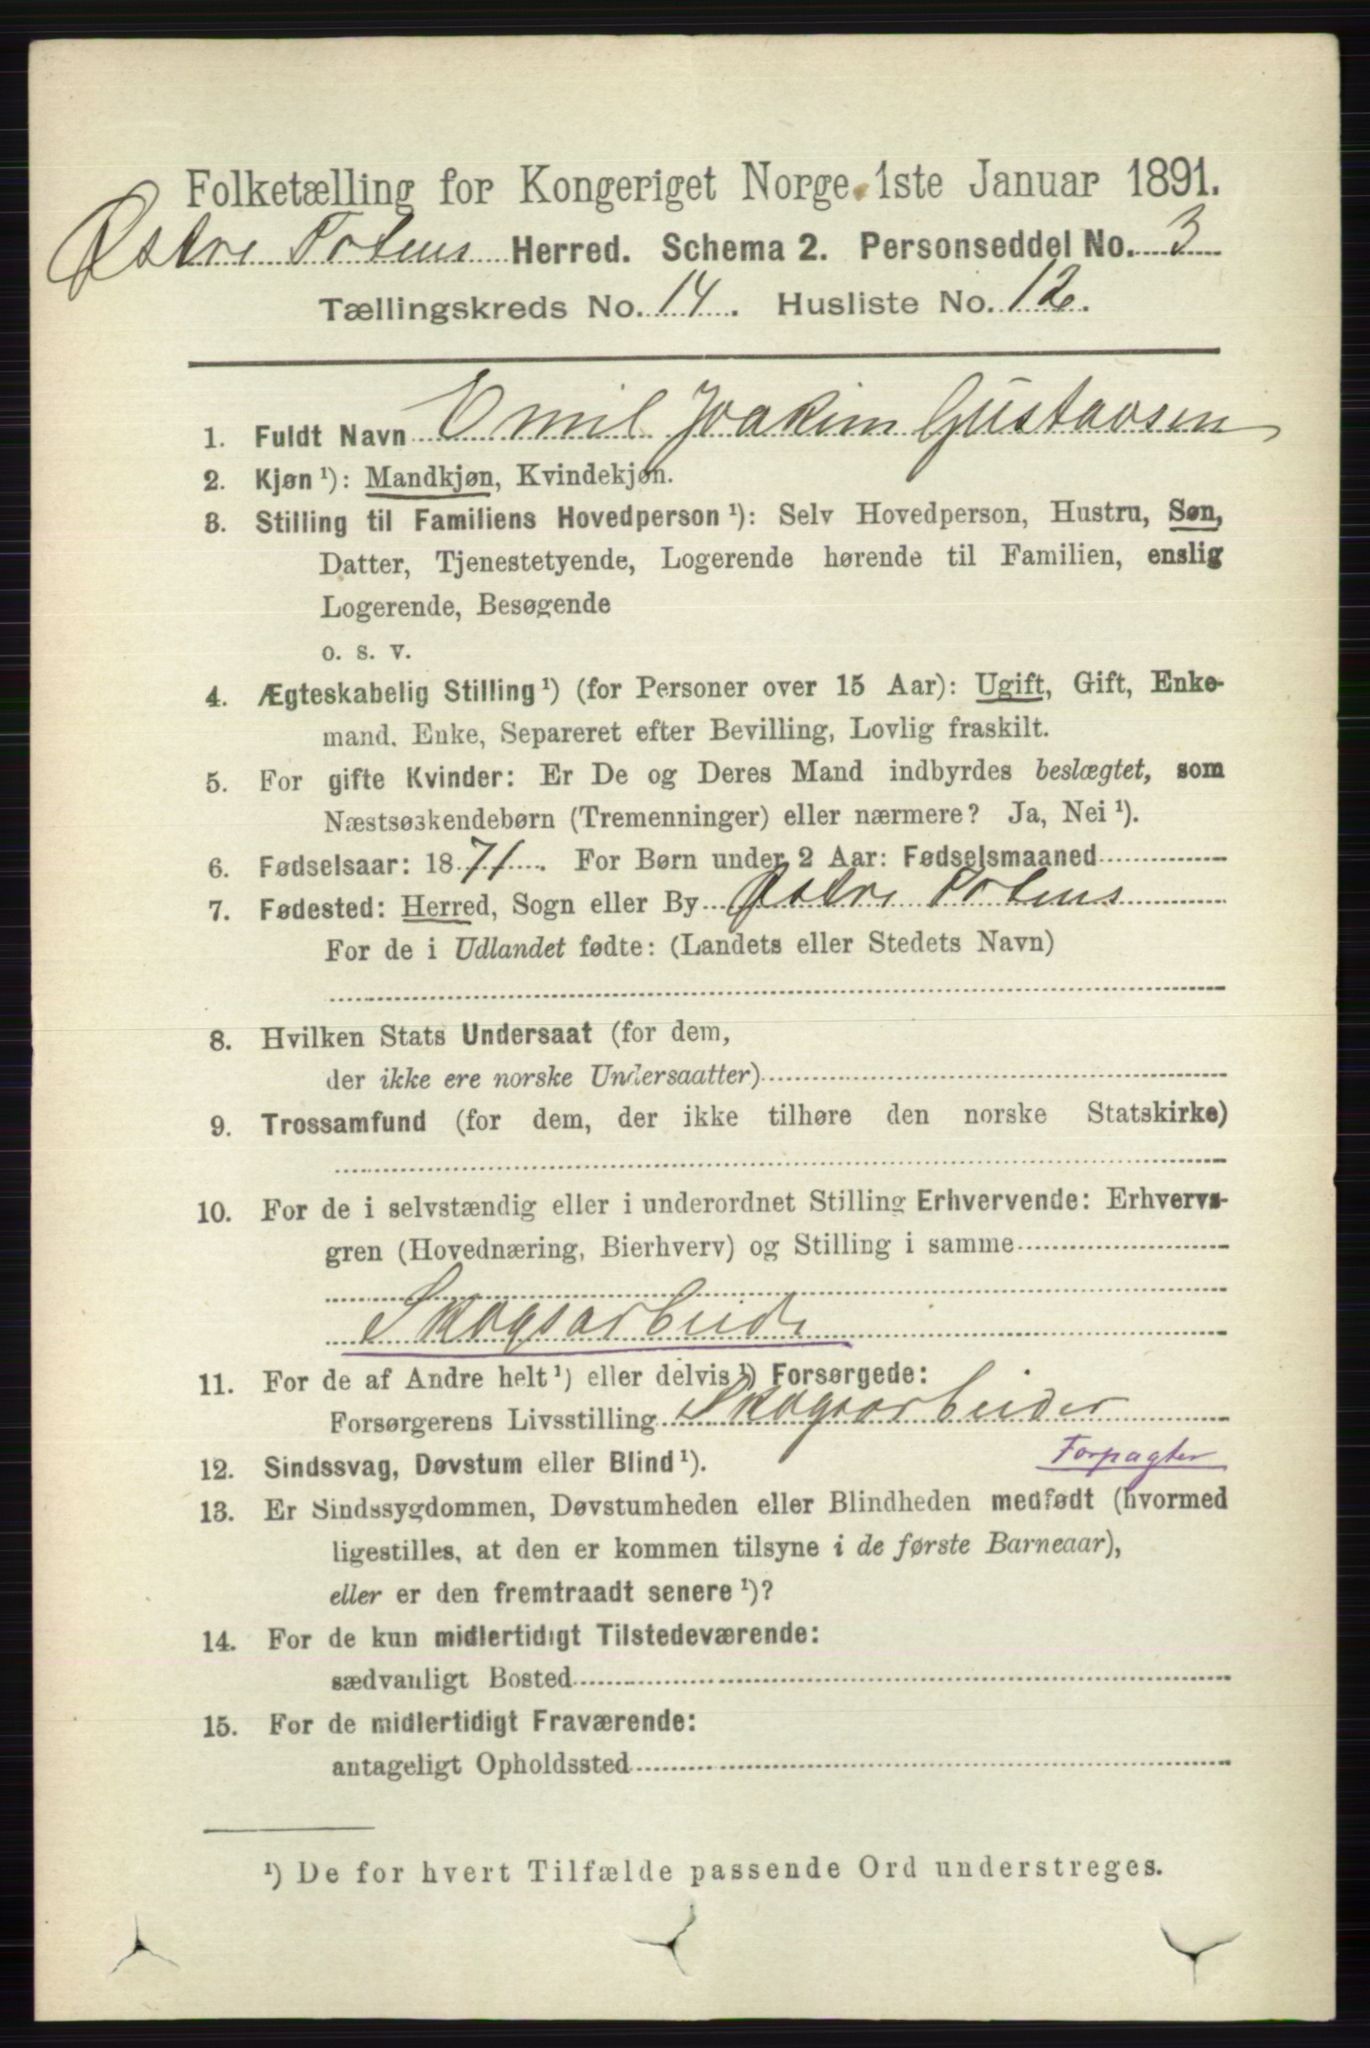 Folketælling for Kongeriget Norge 1ste Januar 1891.
Østre Totens Herred. Schema 2. Personseddel No. 3
Tællingskreds No. 14. Husliste No. 12.
1. Fuldt Navn Emil Joakim Gustavsen
2. Kjøn ¹): Mandkjøn, Kvindekjøn.
3. Stilling til Familiens Hovedperson ¹): Selv Hovedperson, Hustru, Søn,
Datter, Tjenestetyende, Logerende hørende til Familien, enslig
Logerende, Besøgende
o. s. v.
4. Ægteskabelig Stilling ¹) (for Personer over 15 Aar): Ugift, Gift, Enke-
mand, Enke, Separeret efter Bevilling, Lovlig fraskilt.
5. For gifte Kvinder: Er De og Deres Mand indbyrdes beslægtet, som
Næstsøskendebørn (Tremenninger) eller nærmere? Ja, Nei ¹).
6. Fødselsaar: 1871. For Børn under 2 Aar: Fødselsmaaned
7. Fødested: Herred, Sogn eller By Østre Totens
For de i Udlandet fødte: (Landets eller Stedets Navn)
8. Hvilken Stats Undersaat (for dem,
der ikke ere norske Undersaatter)
9. Trossamfund (for dem, der ikke tilhøre den norske Statskirke)
10. For de i selvstændig eller i underordnet Stilling Erhvervende: Erhvervs-
gren (Hovednæring, Bierhverv) og Stilling i samme
Skogsarbeide
11. For de af Andre helt ¹) eller delvis ¹) Forsørgede:
Forsørgerens Livsstilling Skogsarbeider
Forpagter
12. Sindssvag, Døvstum eller Blind ¹).
13. Er Sindssygdommen, Døvstumheden eller Blindheden medfødt (hvormed
ligestilles, at den er kommen tilsyne i de første Barneaar),
eller er den fremtraadt senere ¹)?
14. For de kun midlertidigt Tilstedeværende:
sædvanligt Bosted
15. For de midlertidigt Fraværende:
antageligt Opholdssted
¹) De for hvert Tilfælde passende Ord understreges.